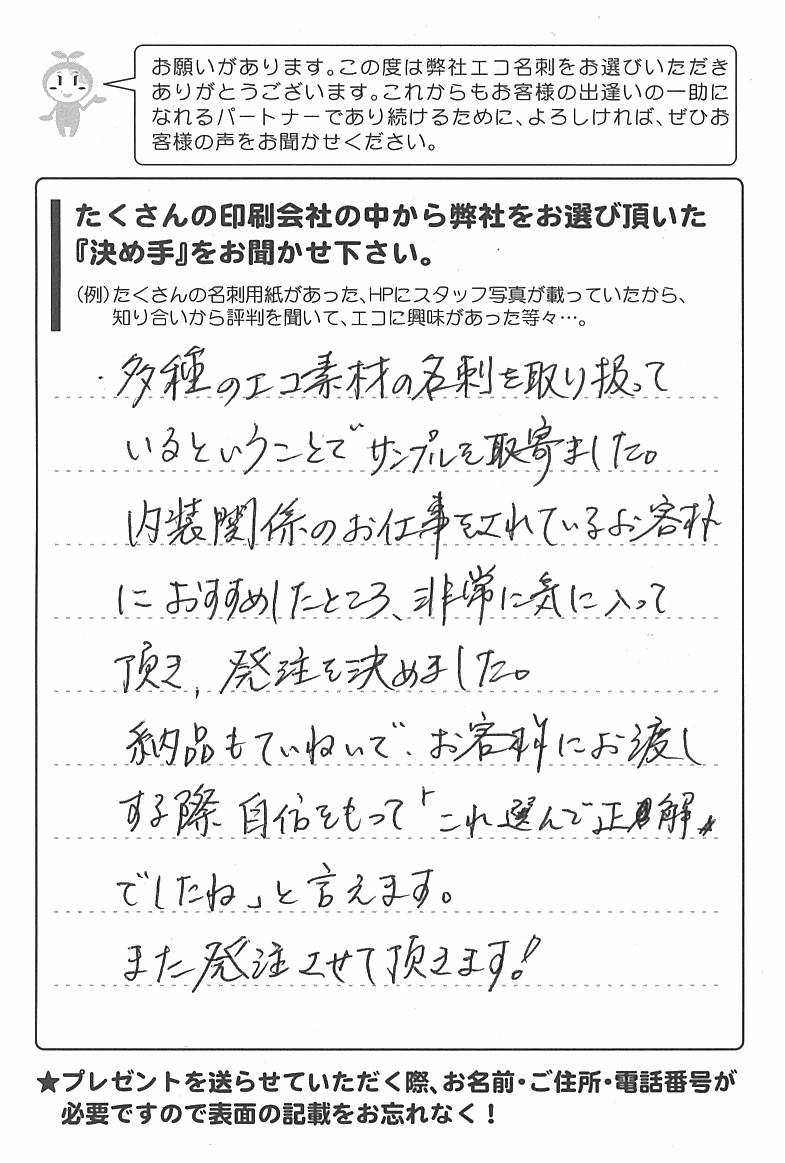 お願いがあります。この度は弊社エコ名刺をお選びいただき
ありがとうございます。これからもお客様の出逢いの一助に
なれるパートナーであり続けるために、よろしければ、ぜひお
客様の声をお聞かせください。
たくさんの印刷会社の中から弊社をお選び頂いた
『決め手』をお聞かせ下さい。
(例)たくさんの名刺用紙があった、HPにスタッフ写真が載っていたから、
知り合いから評判を聞いて、エコに興味があった等々…。
・多種のエコ素材の名刺を取り扱って
いるということでサンプルを取寄ました。
内装関係のお仕事をされているお客様
におすすめしたところ、非常に気に入って
頂き、発注を決めました。
納品もていねいで、お客様にお渡し
する際 自信をもって「これ選んで正解
でしたね」と言えます。
また発注させて頂きます!
★プレゼントを送らせていただく際、お名前・ご住所・電話番号が
必要ですので表面の記載をお忘れなく!